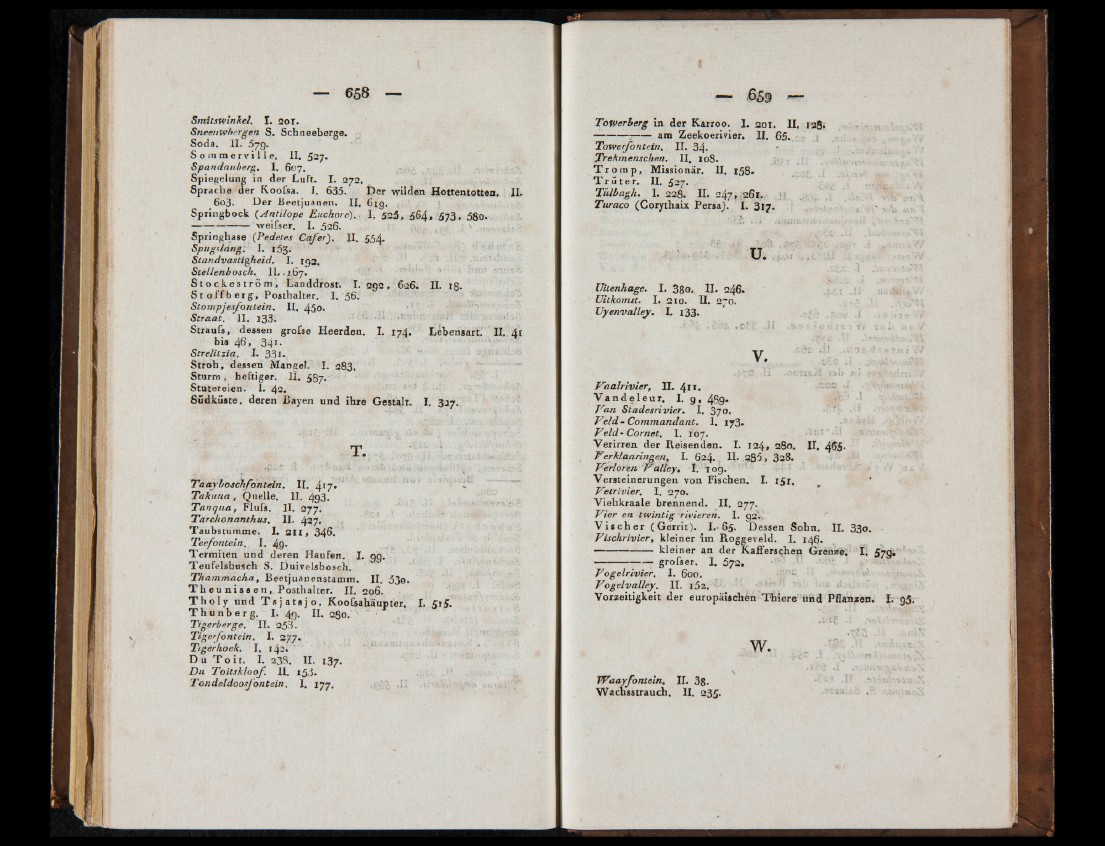 — 658 —
Smitswinkel. I. 201.
Sneeuwbergen S. Schneeberge.
Soda. II. 579.
Sommerville. II. 527.
Spandauberg. I. 607.
Spiegelung in der Luft. I. 272.
Sprache der Koofsa. I. 635. Der wilden Hottentotten. II.
603. Der Beetjuanen. II. 619.
Springbock (Antilope Euchore). I. 525, 564, 573, 580.
————— weifser. I. 526.
Springhase (Pedetes Cafer). II. 554.
Spugslang. I. 163.
Standvastigheid. I. 192.
Stellenbosch. II. 167.
Stockeström, Landdrost. I. 292, 626. II. 18.
Stoffberg, Posthalter. I. 56.
Stompjesfontein. II. 450.
Straat. II. 133.
Straufs, dessen grofse Heerden. I. 174. Lebensart. II. 41
bis 46, 341.
Strelitzia. I. 331.
Stroh, dessen Mangel. I. 283.
Sturm, heftiger. II. 587.
Stutereien. I. 42.
Südküste, deren Bayen und ihre Gestalt. I. 327.
T.
Taayboschfontein. II. 417.
Takuna, Quelle. II. 493.
Tanqua, Flufs. II. 277.
Tarchonanthus. II. 427.
Taubstumme. I. 211, 346.
Teefontein. I. 49.
Termiten und deren Haufen. I. 99.
Teufelsbusch S. Duivelsbosch.
Thammacha, Beetjuanenstamm. II. 530.
Theunissen, Posthalter. II. 206.
Tholy und Tsjatsjo, Koofsahäupter. I. 515.
Thunberg. I. 49. II. 280.
Tigerberge. II. 253.
Tigerfontein. I. 277.
Tigerhoek. I. 142.
Du Toit. I. 238. II. 137.
Du Toitskloof. II. 153.
Tondeldoosfontein. I. 177.
— 659 —
Towerberg in der Karroo. I. 201. II. 128.
————— am Zeekoerivier. II. 65.
Towerfontein. II. 34.
Trekmenschen. II. 108.
Tromp, Missionär. II. 158.
Trüter. II. 527.
Tülbagh. I. 228. II. 247, 261.
Turaco (Corythaix Persa). I. 317.
U.
Uitenhage. I. 380. II. 246.
Uitkomst. I. 210. II. 270.
Uyenvalley. I. 133.
V.
Vaalrivier, II. 411.
Vandeleur. I. 9, 489.
Van Stadesrivier. I. 370.
Veld-Commandant. I. 173.
Veld-Cornet. I. 107.
Verirren der Reisenden. I. 124, 280. II. 465.
Verklaaringen, I. 624. II. 285, 328.
Verloren Valley. I. 109.
Versteinerungen von Fischen. I. 151.
Vetrivier. I. 270.
Viehkraale brennend. II. 277.
Vier en twintig rivieren. I. 92.
Vischer (Gerrit). I. 65. Dessen Sohn. II. 330.
Vischrivier, kleiner im Roggeveld. I. 146.
————— kleiner an der Kafferschen Grenze. I. 579.
————— grofser. I. 572.
Vogelrivier. I. 600.
Vogelvalley. II. 152.
Vorzeitigkeit der europäischen Thiere und Pflanzen. I. 95.
W.
Waayfontein. II. 38.
Wachsstrauch. II. 235.